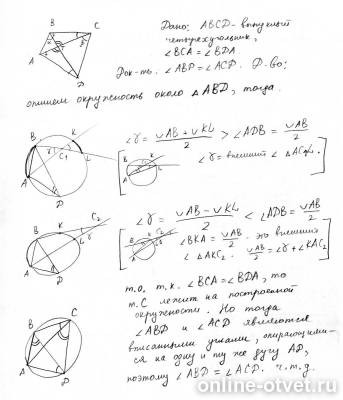 Дано: ABCD - выпуклый
четырехугольник,
∠BCA = ∠BDA
Док-ть. ∠ABD = ∠ACD. Д-во:
опишем окружность около △ABD, тогда.
∠γ = (∪AB + ∪KL)/2 > ∠ADB = ∪AB/2
[∠γ = внешний ∠ △AC₁L.]
∠γ = (∪AB − ∪KL)/2 < ∠ADB = ∪AB/2
[∠BKA = ∪AB/2. это внешний
∠ △AKC₂. ∪AB/2 = ∠γ + ∠KAC₂]
т.о. т.к. ∠BCA = ∠BDA, то
т. C лежит на построенной
окружности. Но тогда
∠ABD и ∠ACD являются
вписанными углами, опирающими-
ся на одну и ту же дугу AD,
поэтому ∠ABD = ∠ACD. ч.т.д.
online-otvet.ru